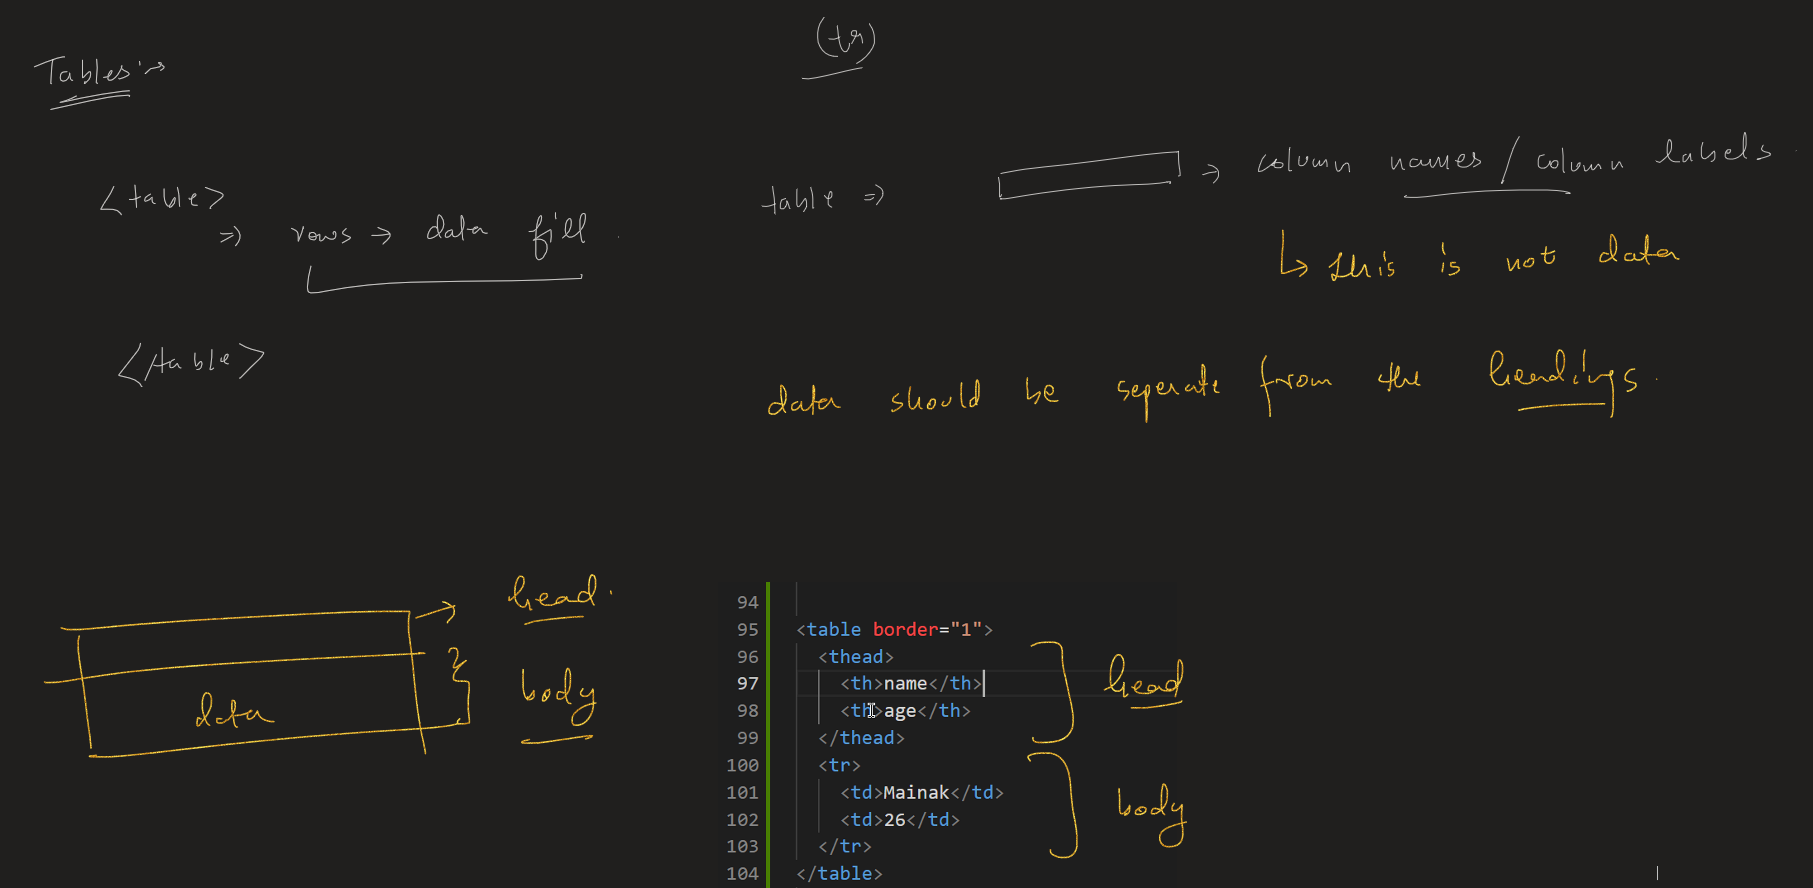 (tr)
Tables:→
<table>
⇒ rows → data fill.
</table>
table ⇒ → column names / column labels.
↳ this is not data
data should be seperate from the headings.
→ head.
data
body
94
95 <table border="1">
96 <thead>
97 <th>name</th>
98 <th>age</th>
99 </thead>
100 <tr>
101 <td>Mainak</td>
102 <td>26</td>
103 </tr>
104 </table>
head
body